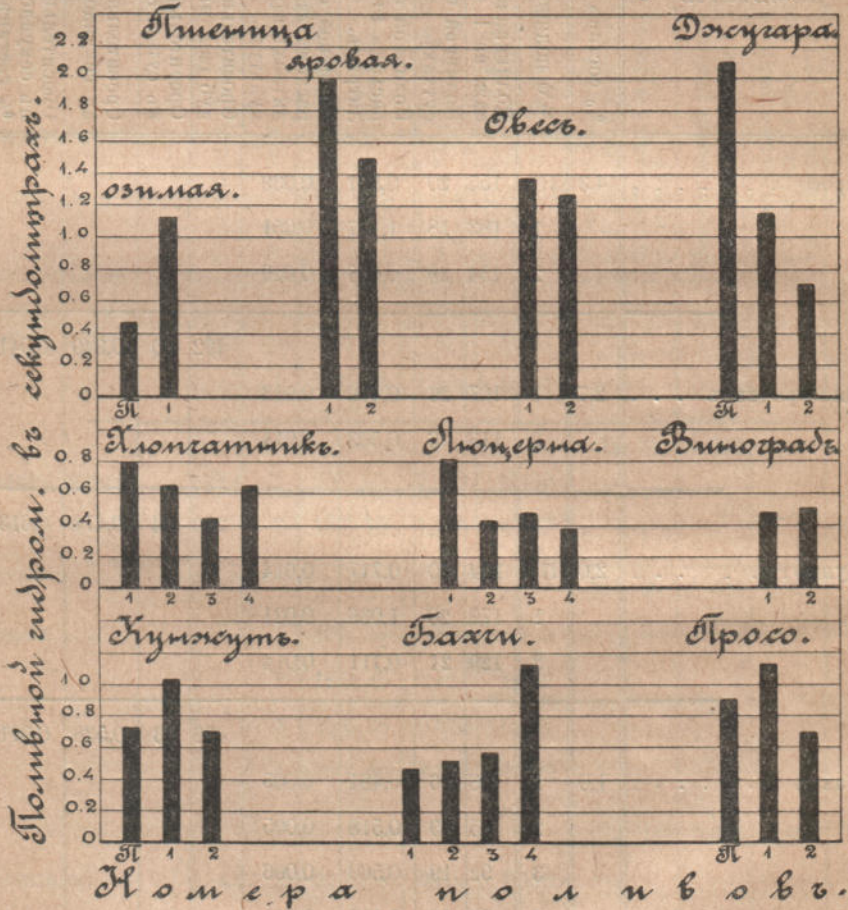 Поливной гидром. въ секундолитрахъ.
Пшеница Джугара.
яровая.
Овесъ.
озимая.
2.2
2.0
1.8
1.6
1.4
1.2
1.0
0.8
0.6
0.4
0.2
0
П 1 1 2 1 2 П 1 2
Хлопчатникъ. Люцерна. Виноградъ.
0.8
0.6
0.4
0.2
0
1 2 3 4 1 2 3 4 1 2
Кунжутъ. Бахчи. Просо.
1.0
0.8
0.6
0.4
0.2
0
П 1 2 1 2 3 4 П 1 2
Номера поливовъ.